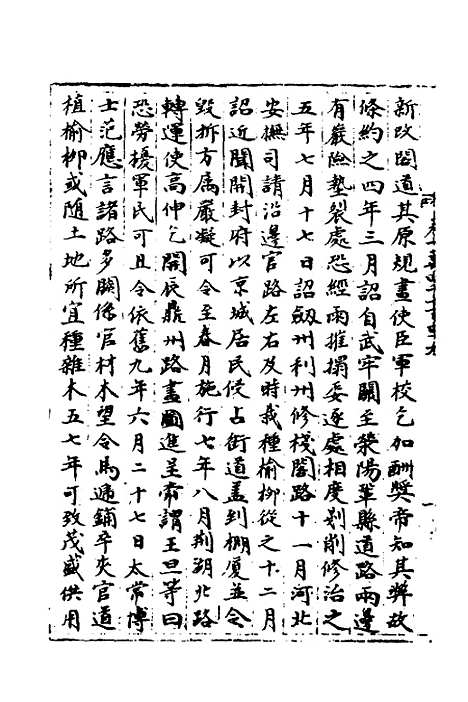 新改閣道其原規畫使臣軍校乞加酬獎帝知其弊故
條約之四年三月詔自武牢關至滎陽鞏縣道路兩邊
有嚴險墊裂處恐經雨摧塌委逐處相度剗削修治之
五年七月十七日詔劔州利州修棧閣路十一月河北
安撫司請沿邊官路左右及時栽種榆柳從之十二月
詔近聞開封府以京城居民侵占街道盖到棚厦並令
毀拆方属嚴凝可令至春月施行七年八月荆湖北路
轉運使高伸乞開辰鼎州路畫圖進呈帝謂王旦等曰
恐勞擾軍民可且令依舊九年六月二十七日太常博
士范應言諸路多闕係官材木望令馬遞鋪卒夾官道
植榆柳或随土地所宜種雜木五七年可致茂盛供用